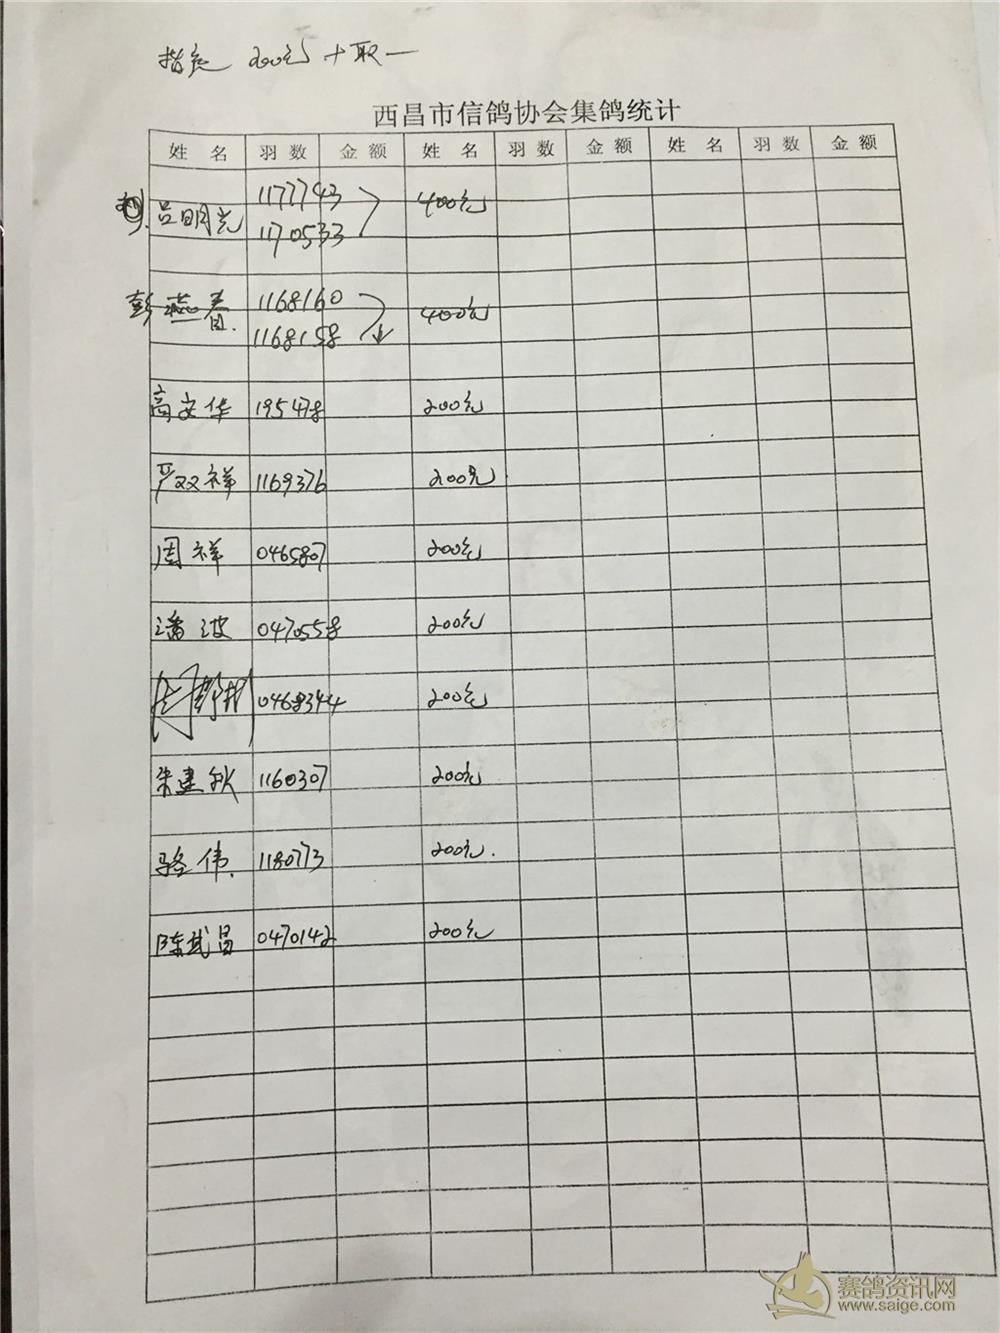 指定 200元 十取一
西昌市信鸽协会集鸽统计
姓名 羽数 金额 姓名 羽数 金额 姓名 羽数 金额
吕明光 1177743 400元
1170533
彭燕春 1168160 400元
1168158
高文华 195478 200元
严双祥 1169376 200元
周祥 0465807 200元
潘波 0470558 200元
0468344 200元
朱建秋 1160307 200元
骆伟. 1180773 200元.
陈武昌 0470142 200元
赛鸽资讯网
www.saige.com